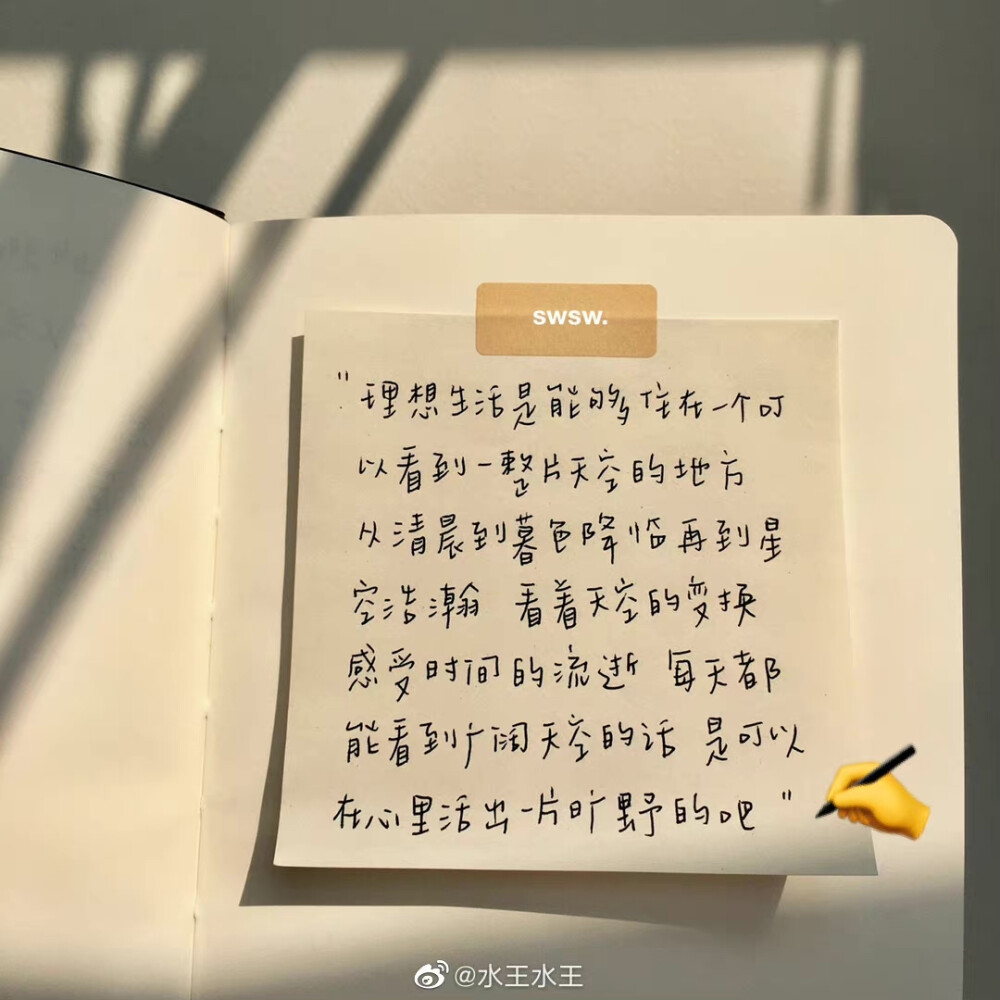 swsw.
"理想生活是能够住在一个可
以看到一整片天空的地方
从清晨到暮色降临再到星
空浩瀚 看着天空的变换
感受时间的流逝 每天都
能看到广阔天空的话 是可以
在心里活出一片旷野的吧"
@水王水王